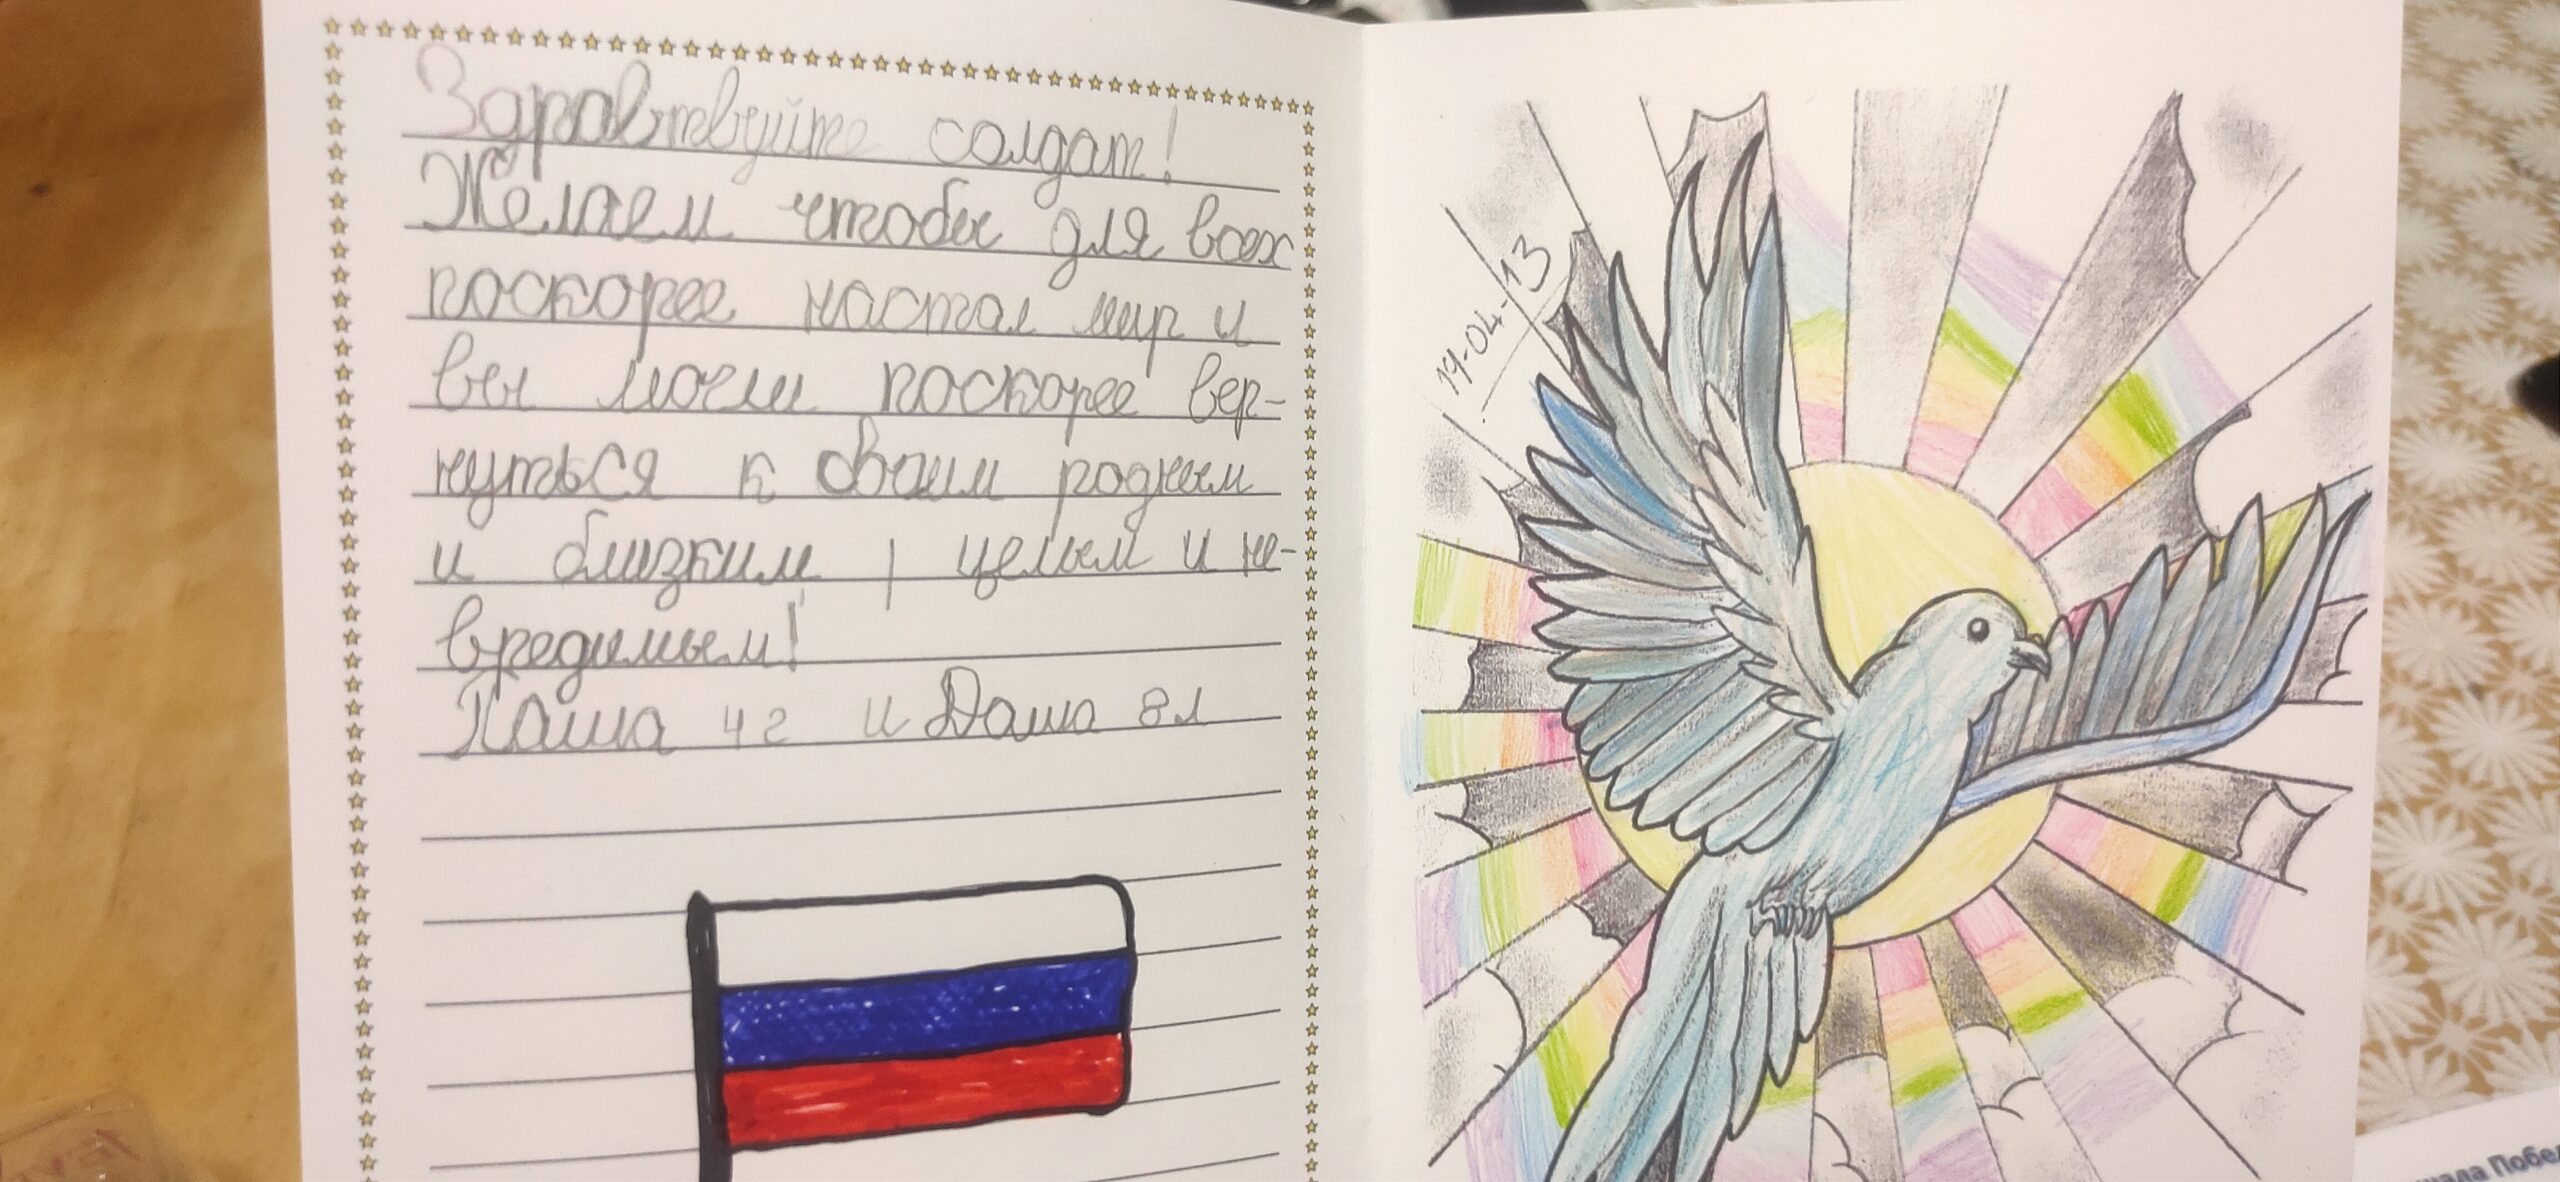 Здравствуйте солдат!
Желаем чтобы для всех
поскорее настал мир и
вы могли поскорее вер-
нуться к своим родным
и близким, целым и не-
вредимым!
Паша 4 г и Даша 8 л
19-04-13